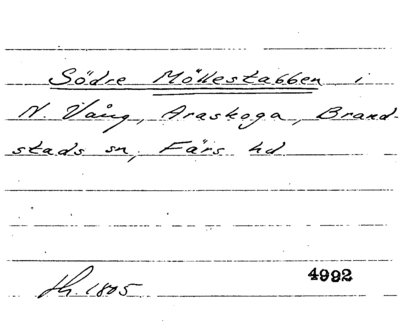 Södre Möllestabben i
N. Vång, Araskoga, Brand-
stads sn, Färs hd
sh. 1805
4992